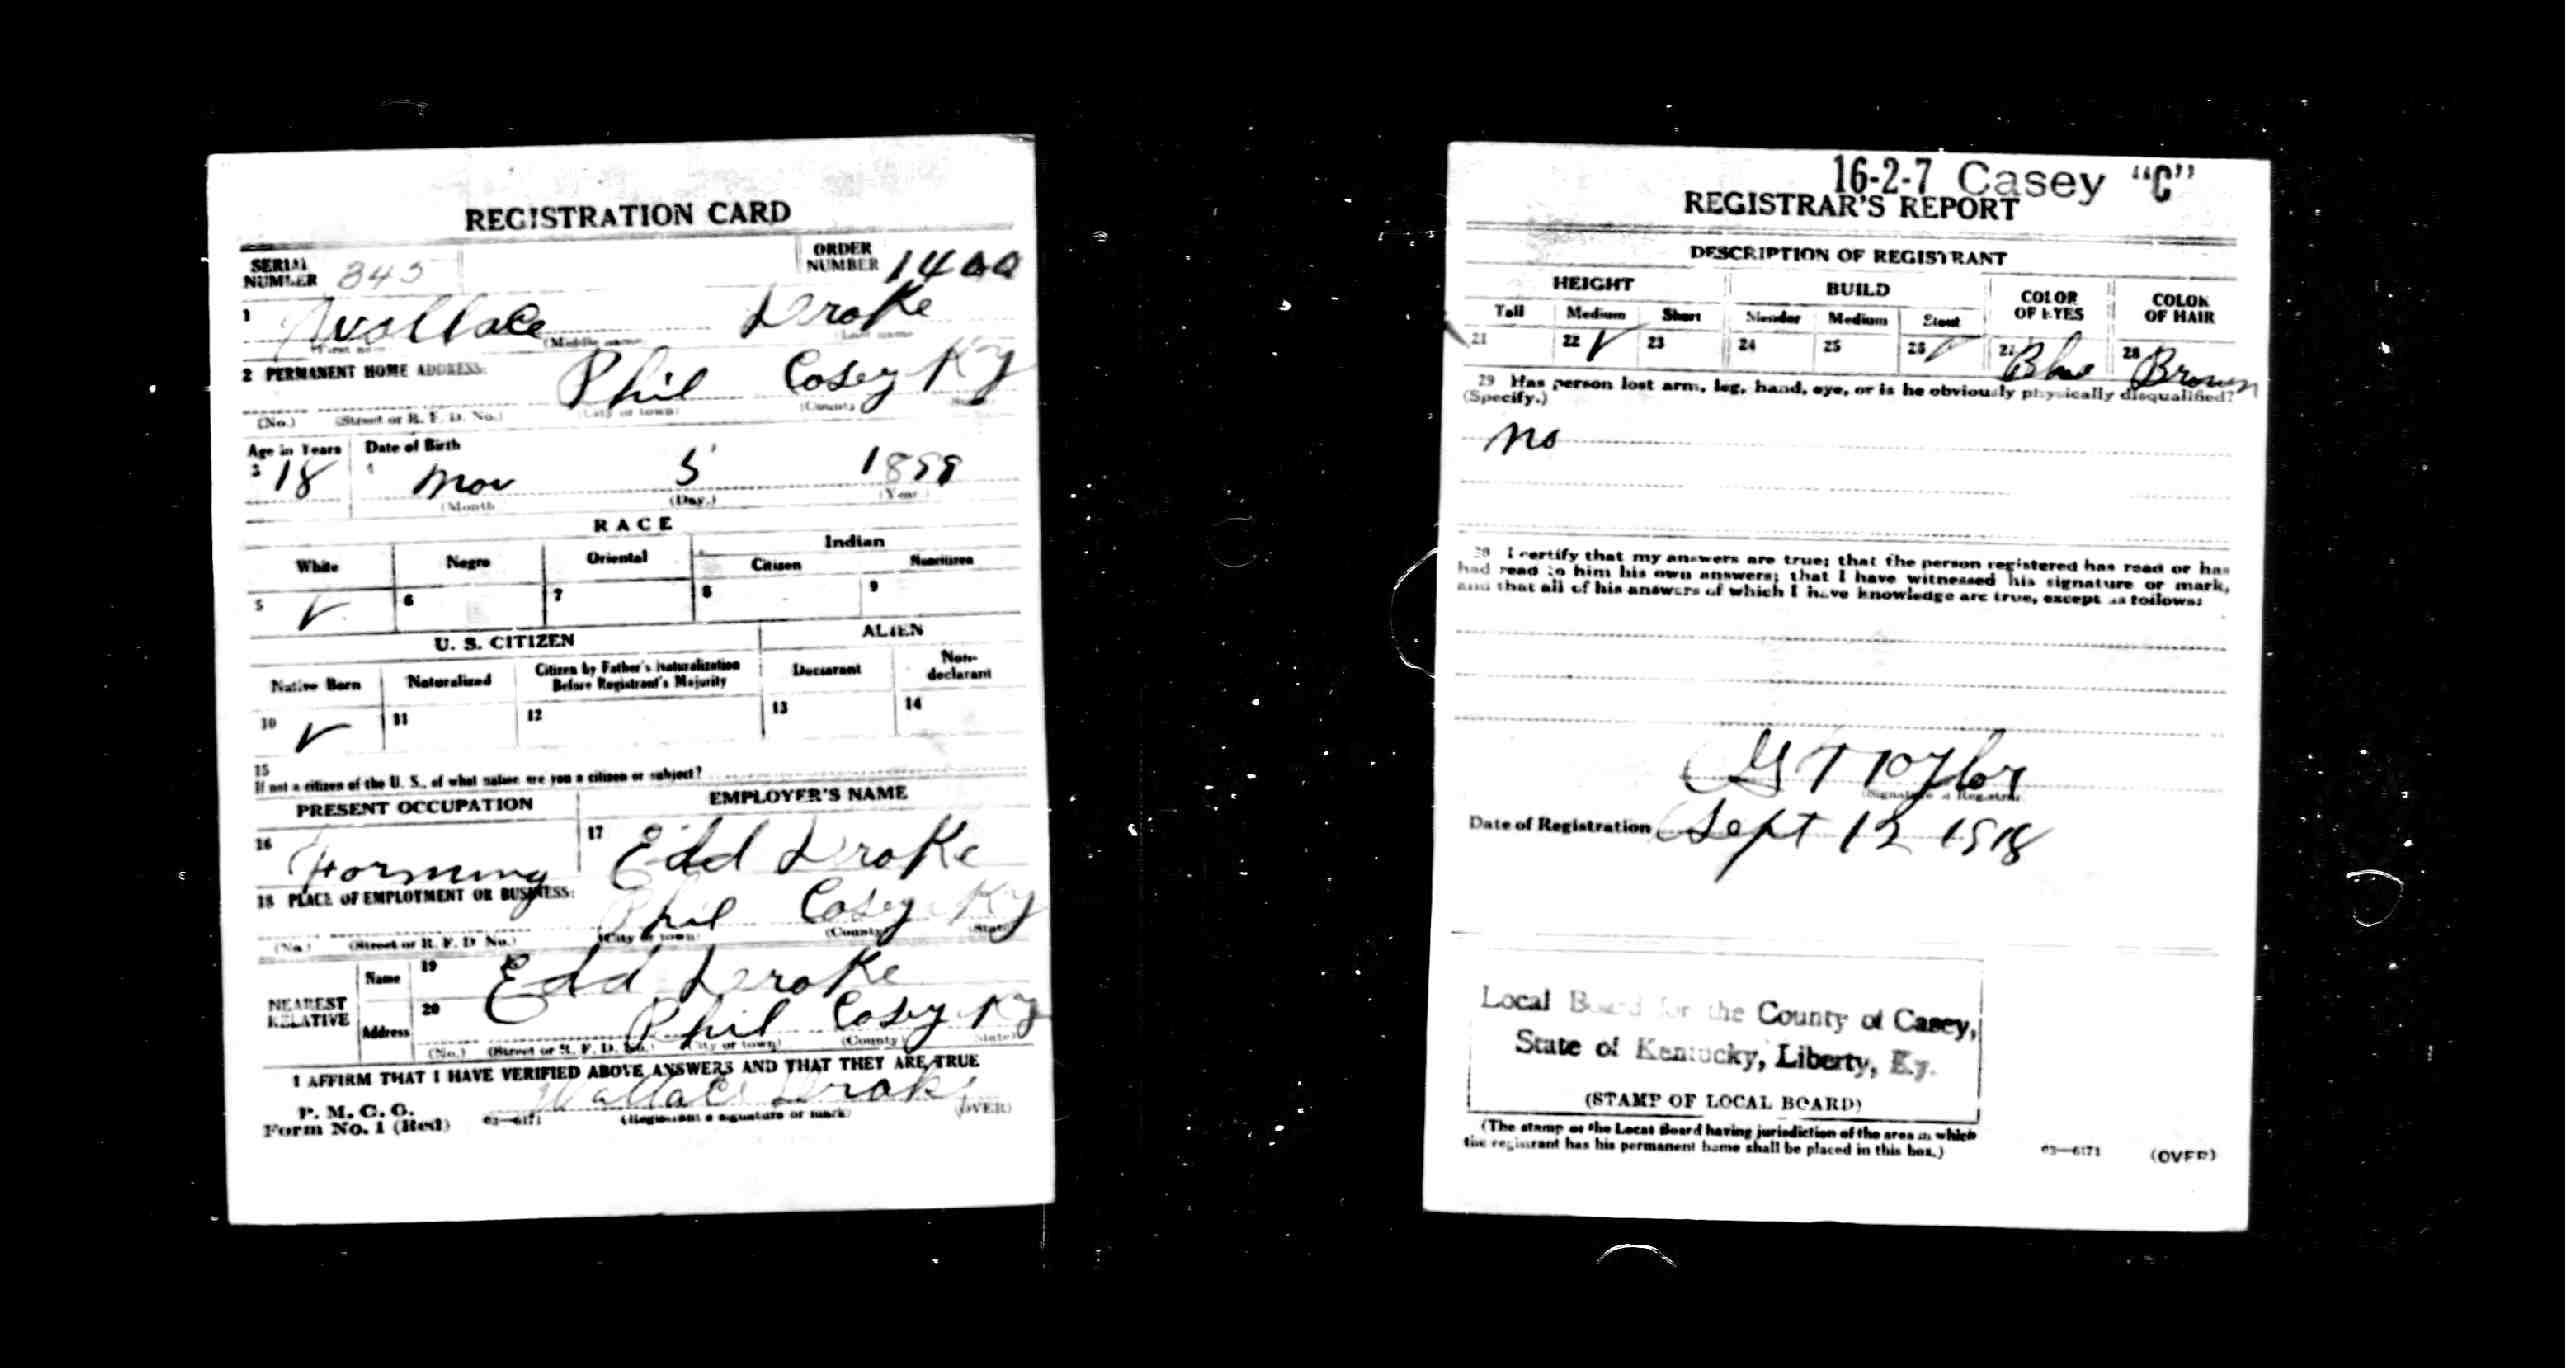 REGISTRATION CARD
SERIAL NUMBER 345 ORDER NUMBER 1400
1 Wallace Drake
(First name) (Middle name) (Last name)
2 PERMANENT HOME ADDRESS: Phil Casey Ky
(No.) (Street or R. F. D. No.) (City or town) (County) (State)
Age in Years Date of Birth
3 18 4 Nov 5 1899
(Month) (Day.) (Year.)
RACE
White Negro Oriental Indian
Citizen Noncitizen
5 ✓ 6 7 8 9
U. S. CITIZEN ALIEN
Native Born Naturalized Citizen by Father's Naturalization Before Registrant's Majority Declarant Non-declarant
10 ✓ 11 12 13 14
15
If not a citizen of the U. S., of what nation are you a citizen or subject?
PRESENT OCCUPATION EMPLOYER'S NAME
16 Farming 17 Edd Drake
18 PLACE OF EMPLOYMENT OR BUSINESS: Phil Casey Ky
(No.) (Street or R. F. D. No.) (City or town) (County) (State)
NEAREST RELATIVE Name 19 Edd Drake
Address 20 Phil Casey Ky
(No.) (Street or R. F. D. No.) (City or town) (County) (State)
I AFFIRM THAT I HAVE VERIFIED ABOVE ANSWERS AND THAT THEY ARE TRUE
P. M. G. O.
Form No. 1 (Red) 03—6171 Wallace Drake
(Registrant's signature or mark) (OVER)
16-2-7 Casey "C"
REGISTRAR'S REPORT
DESCRIPTION OF REGISTRANT
HEIGHT BUILD COLOR OF EYES COLOR OF HAIR
Tall Medium Short Slender Medium Stout
21 22 ✓ 23 24 25 26 ✓ 27 Blue 28 Brown
29 Has person lost arm, leg, hand, eye, or is he obviously physically disqualified?
(Specify.)
no
30 I certify that my answers are true; that the person registered has read or has
had read to him his own answers; that I have witnessed his signature or mark,
and that all of his answers of which I have knowledge are true, except as follows:
G T Taylor
(Signature of Registrar)
Date of Registration Sept 12 1918
Local Board for the County of Casey,
State of Kentucky, Liberty, Ky.
(STAMP OF LOCAL BOARD)
(The stamp of the Local Board having jurisdiction of the area in which
the registrant has his permanent home shall be placed in this box.)
03—6171 (OVER)